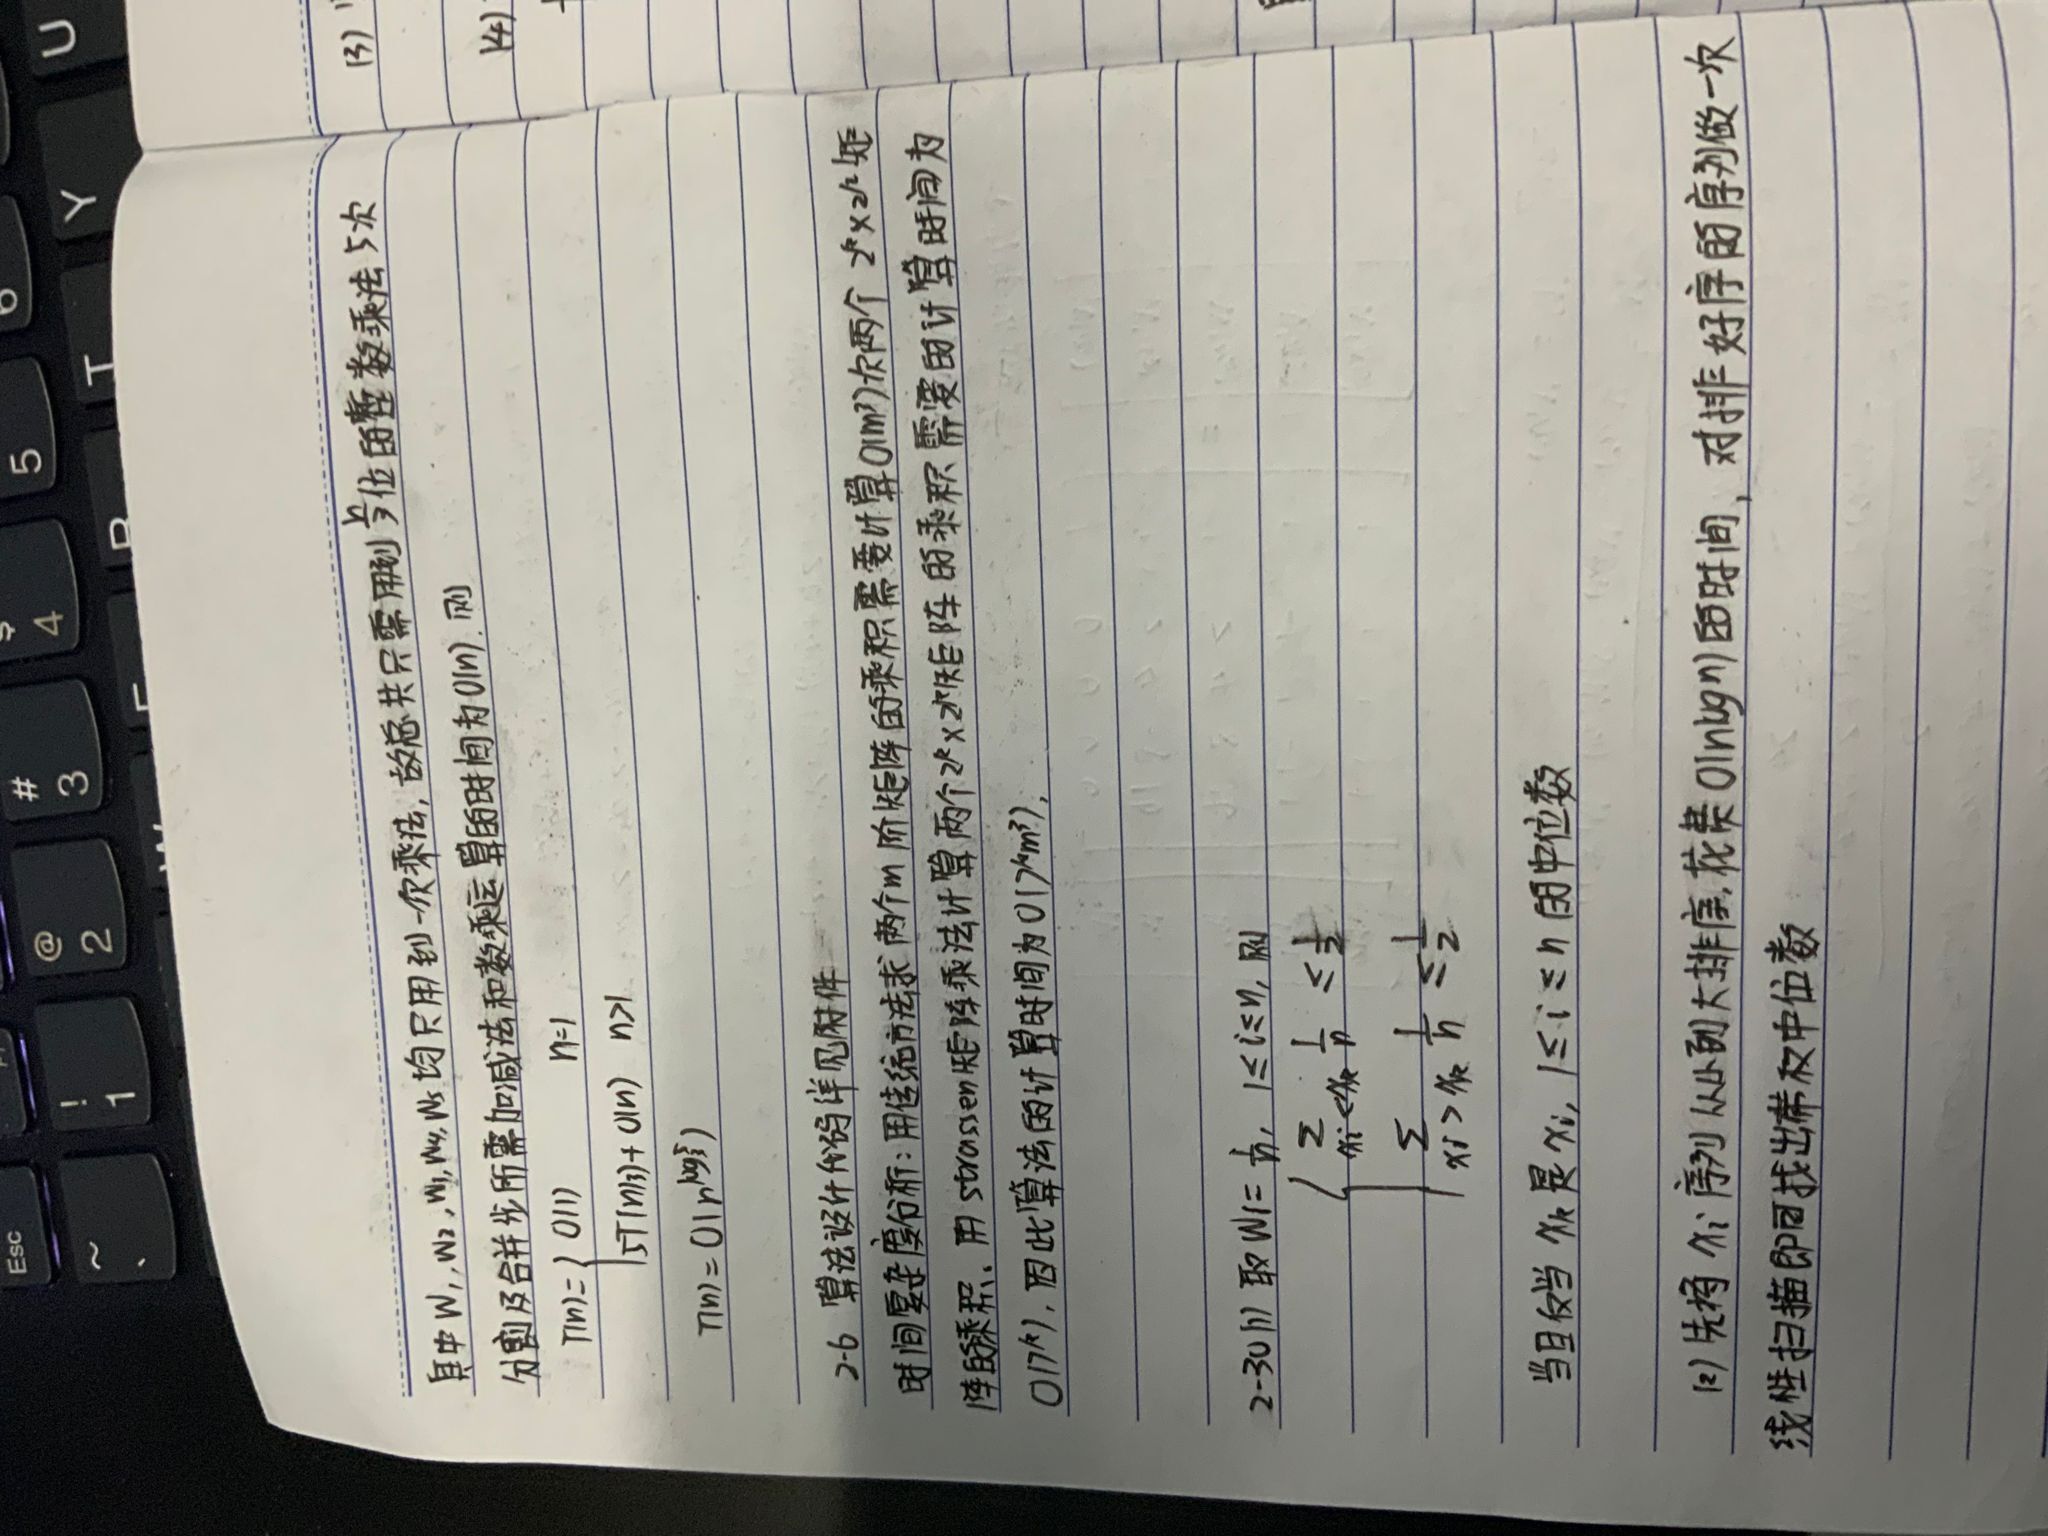 其中W₁,W₂,W₃,W₄,W₅均只用到一次乘法,故总共只需用到n/3位的整数乘法5次
分割及合并步所需加减法和数乘运算的时间为O(n).则
T(n)={ O(1) n=1
5T(n/3)+O(n) n>1
T(n)=O(n^log₃5)
2-6 算法设计代码详见附件
时间复杂度分析:用传统方法求两个m阶矩阵的乘积需要计算O(m³)次两个2^k×2^k矩
阵的乘积、用strassen矩阵乘法计算两个2^k×2^k矩阵的乘积需要的计算时间为
O(7^k),因此算法的计算时间为O(7^k m³),
2-30(1) 取Wi=1/n, 1≤i≤n,则
{ Σ xi<xk 1/n ≤ 1/2
Σ xi>xk 1/n ≤ 1/2
当且仅当 xk是xi, 1≤i≤n 的中位数
(2)先将xi序列从小到大排序,花费O(nlogn)的时间,对排好序的序列做一次
线性扫描即可找出带权中位数
13)
14)
Esc
~
、
!
1
@
2
#
3
$
4
5
6
T
Y
U